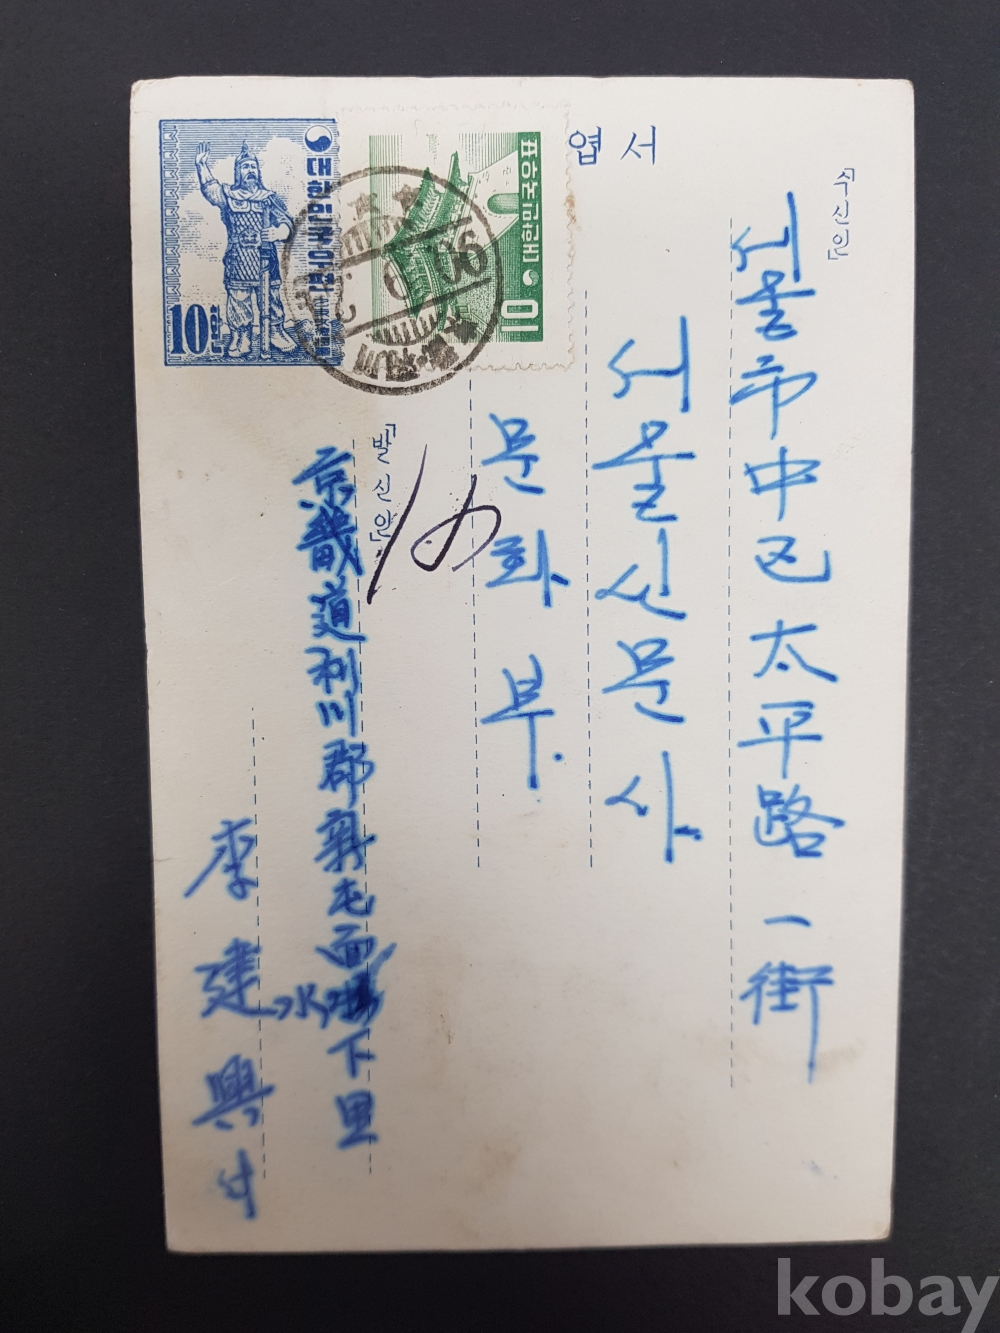 엽서
「수신인」
서울市中区太平路一街
서울신문사
문화부.
「발신인」
京畿道利川郡新屯面
水下里
李建興
대한민국우편
10환
대한민국우표
10
kobay